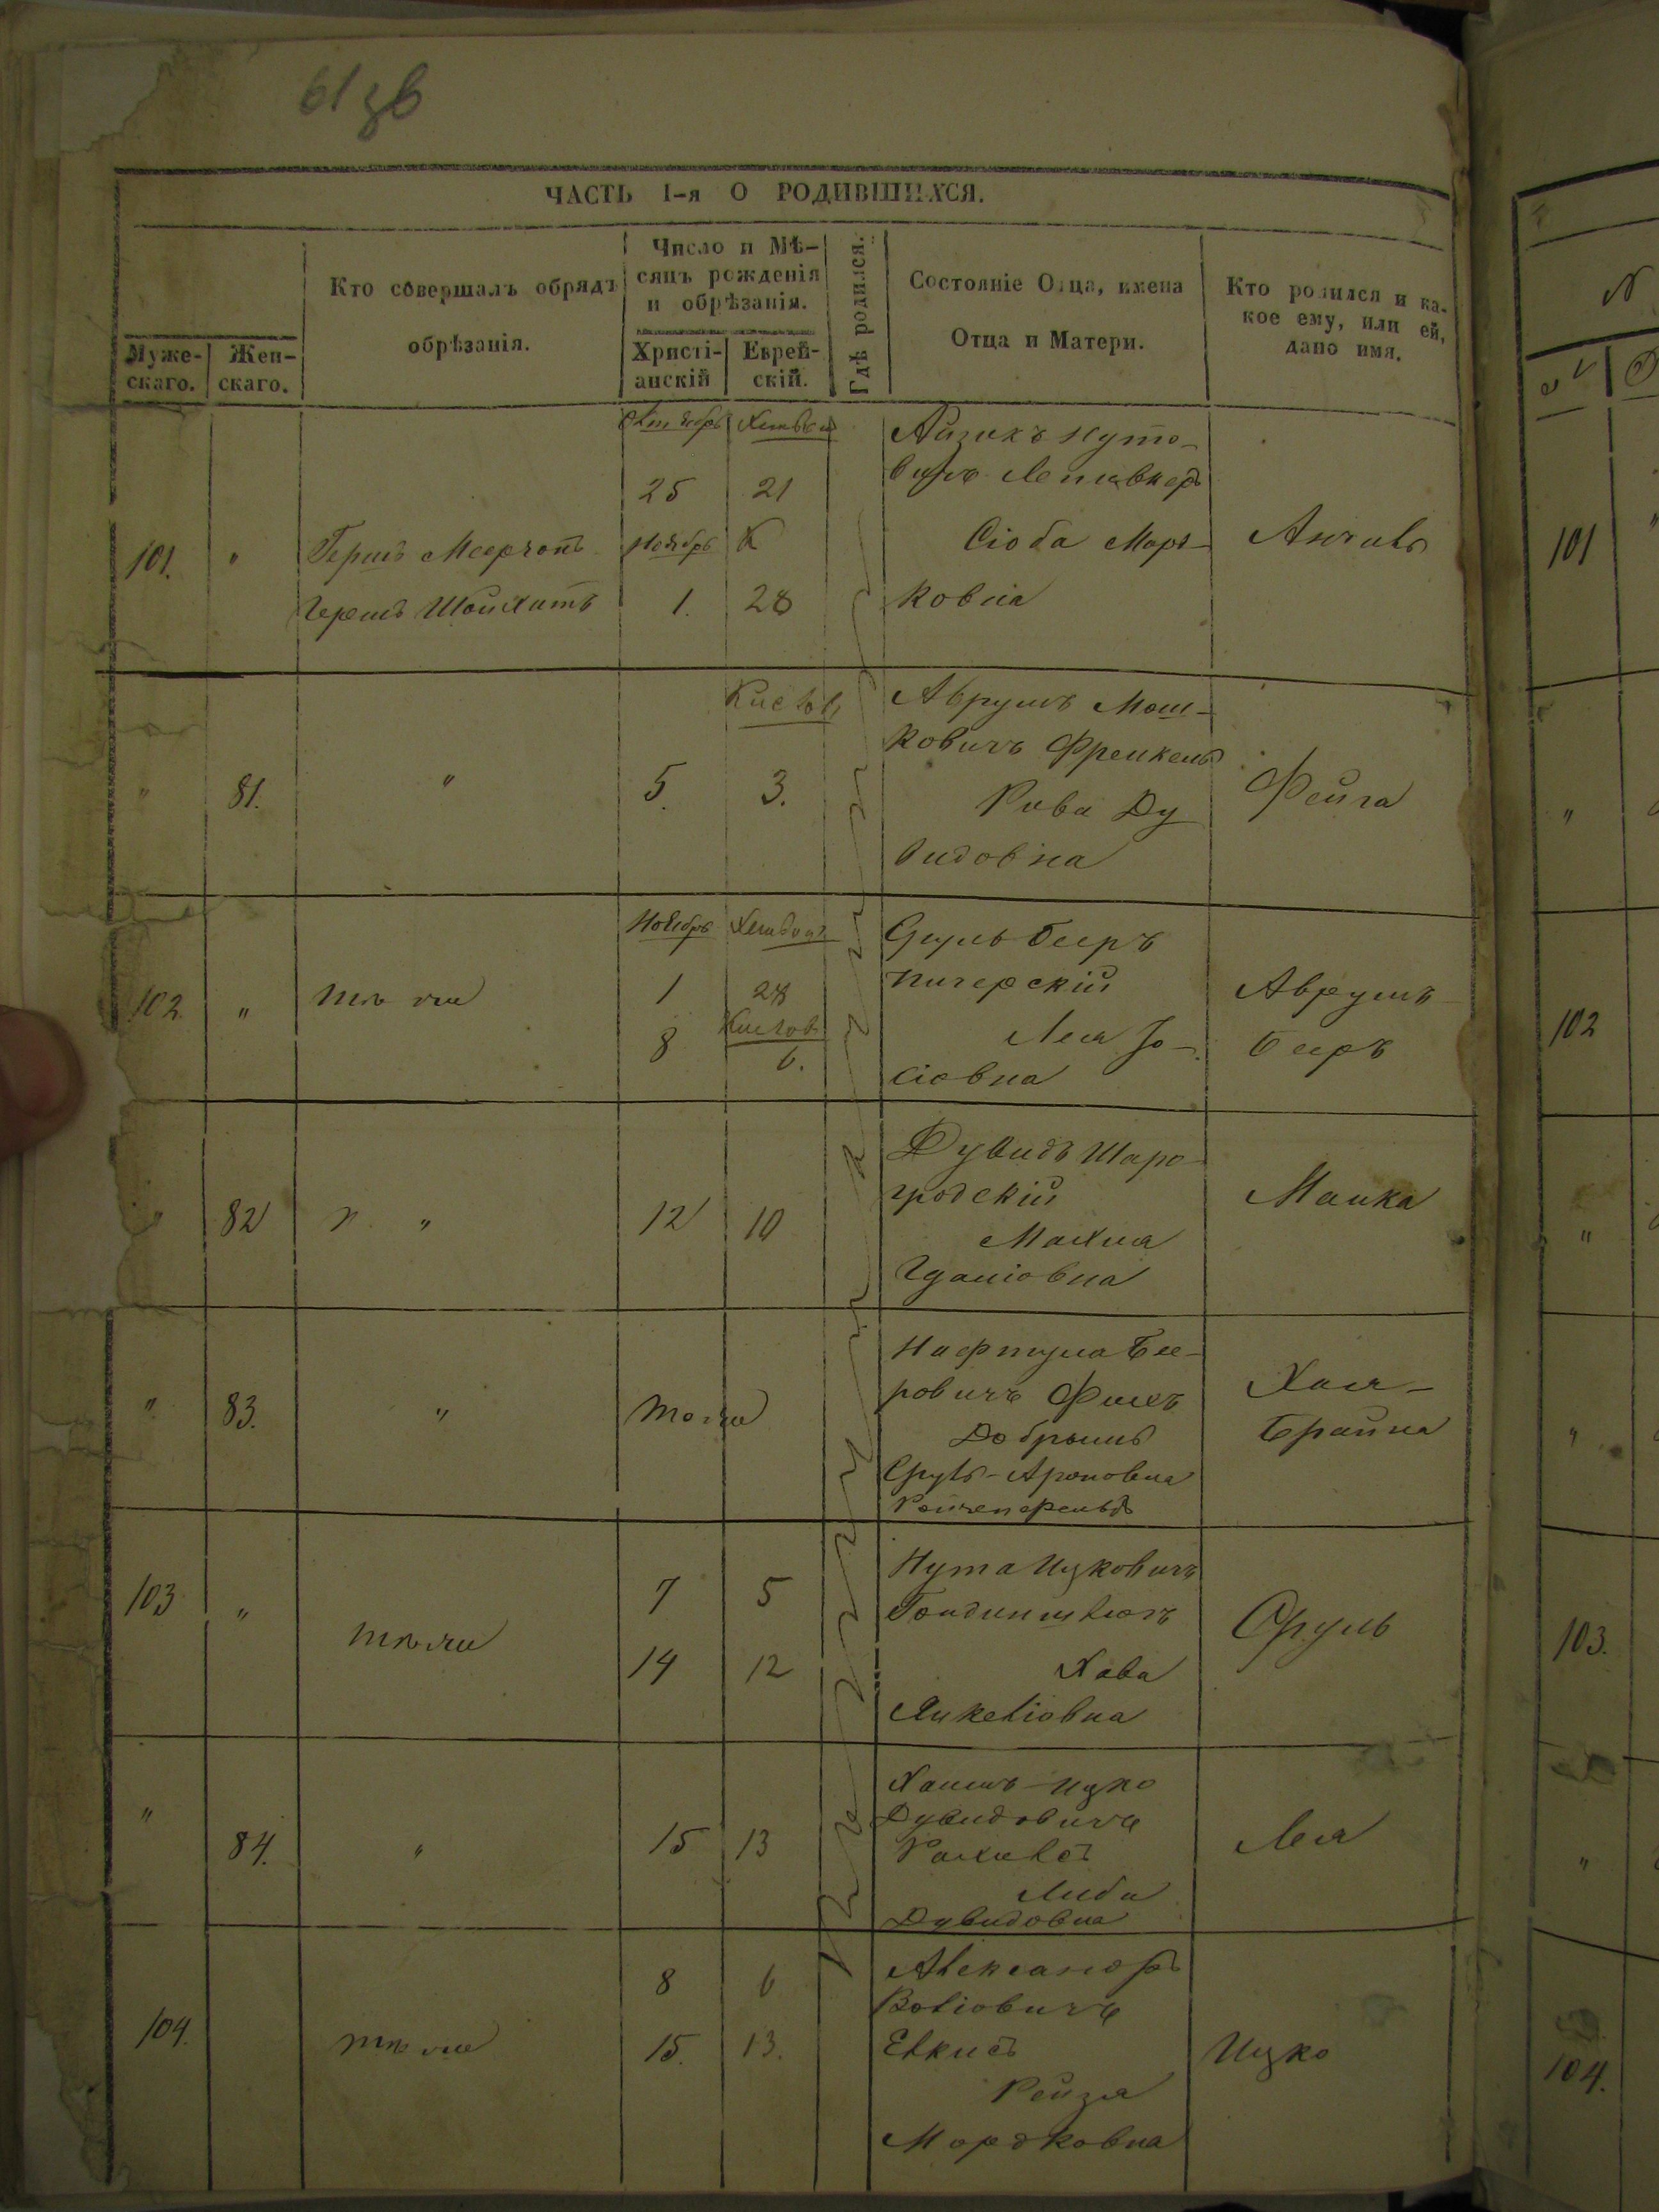 61 зв
ЧАСТЬ I-я О РОДИВШИХСЯ.
Муже-
скаго.
Жен-
скаго.
Кто совершалъ обрядъ
обрѣзанія.
Число и Мѣ-
сяцъ рожденія
и обрѣзанія.
Христі-
анскій
Еврей-
скій.
Гдѣ родился.
Состояніе Отца, имена
Отца и Матери.
Кто родился и ка-
кое ему, или ей,
дано имя.
101. "
Гершъ
Октябрь
25 21
Ноябрь К
1. 28
Айзикъ Нуто-
вичъ
Сіоба Морт-
ковна
" 81. "
Кислов
5. 3.
Аврумъ Мош-
ковичъ Френкель
Рива Ду
видовна
Фейга
102. "
тѣ же
Ноябрь
1 28
Кислов
8 6.
Сруль Беръ
Пичерскій
Лея Іо-
сіовна
Аврумъ
Беръ
82 "
12 10
Дувидъ Шаро-
гродскій
Махля
Манка
" 83. "
тогоже
Нафтула Бе-
ровичъ
Добрышъ
Сруль-Ароновна
Хая-
Брайна
103 "
тѣ же
7 5
14 12
Нута Ицковичъ
Хава
Янкеліовна
Сруль
" 84. "
15 13
Хаимъ-Ицко
Дувидовичъ
Либа
Дувидовна
Лея
104.
тѣ же
8 6
15. 13.
Александръ
Воліовичъ
Елкисъ
Рейзя
Мордковна
Ицко
101
"
102
"
"
103.
"
104.